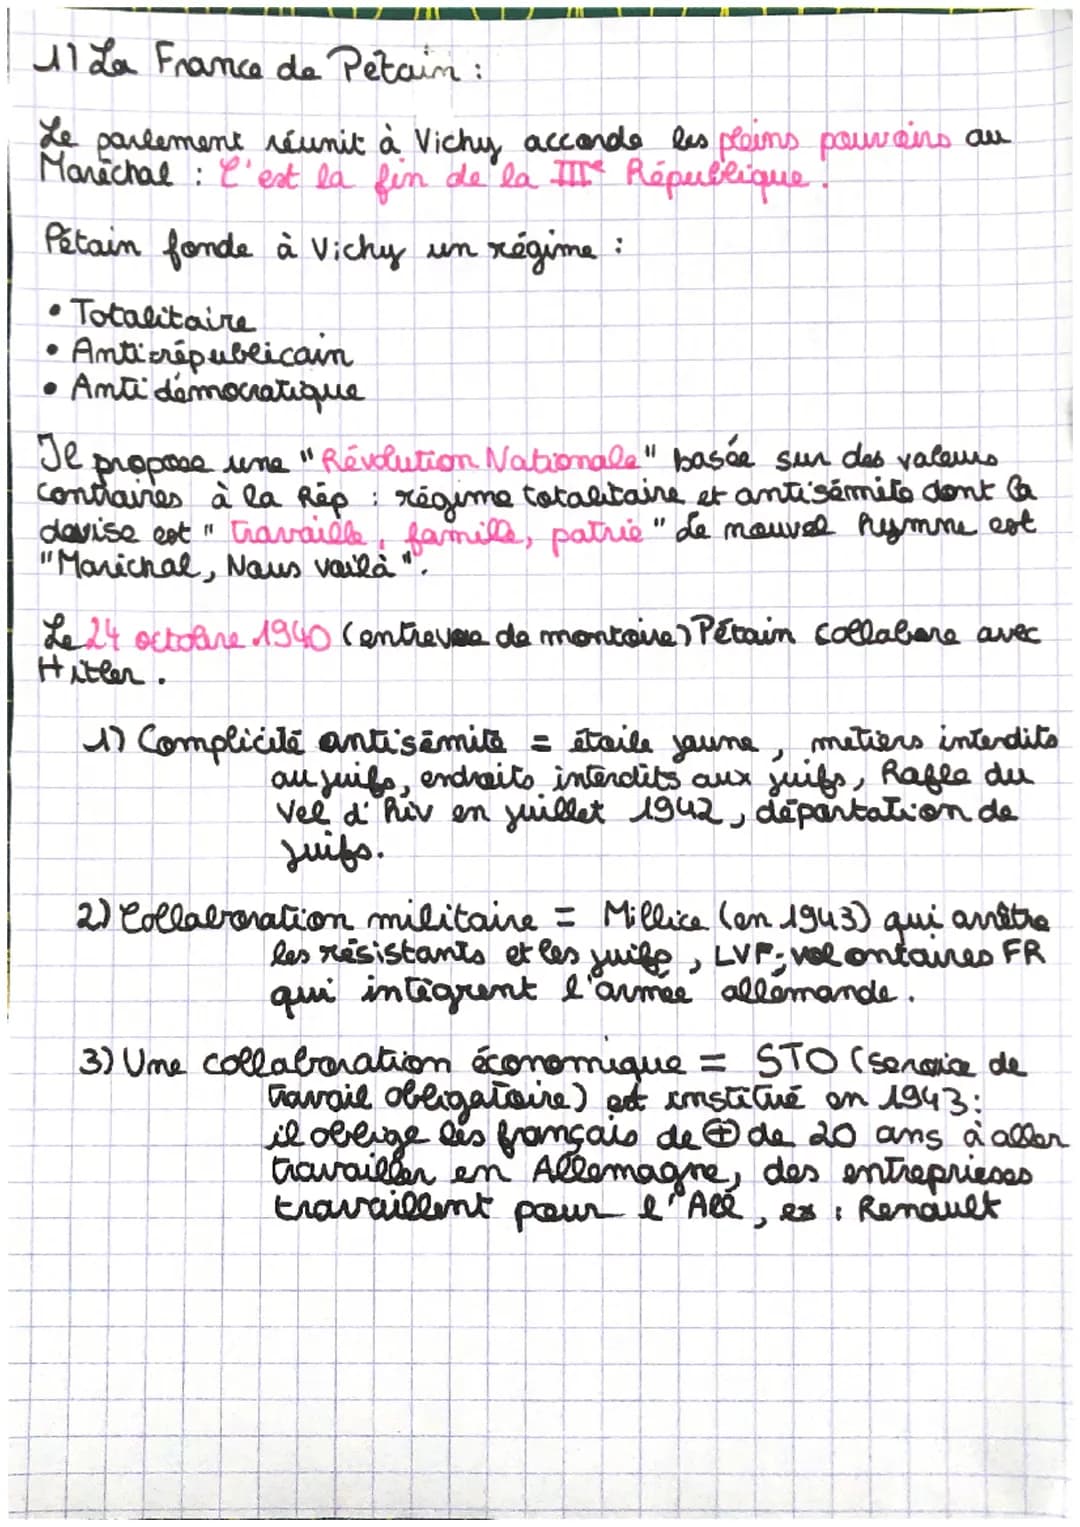 1) La France de Pétain :
Le parlement réunit à Vichy accorde les pleins pouvoirs au
Maréchal : C'est la fin de la IIIe République.
Pétain fonde à Vichy un régime :
• Totalitaire
• Antirépublicain
• Antidémocratique
Il propose une "Révolution Nationale" basée sur des valeurs
contraires à la Rép : régime totalitaire et antisémite dont la
devise est "travaille, famille, patrie" Le nouvel hymne est
"Maréchal, Nous voilà".
Le 24 octobre 1940 (entrevue de montoire) Pétain collabore avec
Hitler.
1) Complicité antisémite = étoile jaune, métiers interdits
au juifs, endroits interdits aux juifs, Rafle du
Vel d'hiv en juillet 1942, déportation de
juifs.
2) Collaboration militaire = Millice (en 1943) qui arrête
les résistants et les juifs, LVF; volontaires FR
qui intègrent l'armée allemande.
3) Une collaboration économique = STO (service de
travail obligatoire) est institué en 1943:
il oblige les français de ⊕ de 20 ans à aller
travailler en Allemagne, des entreprises
travaillent pour l'All, ex : Renault